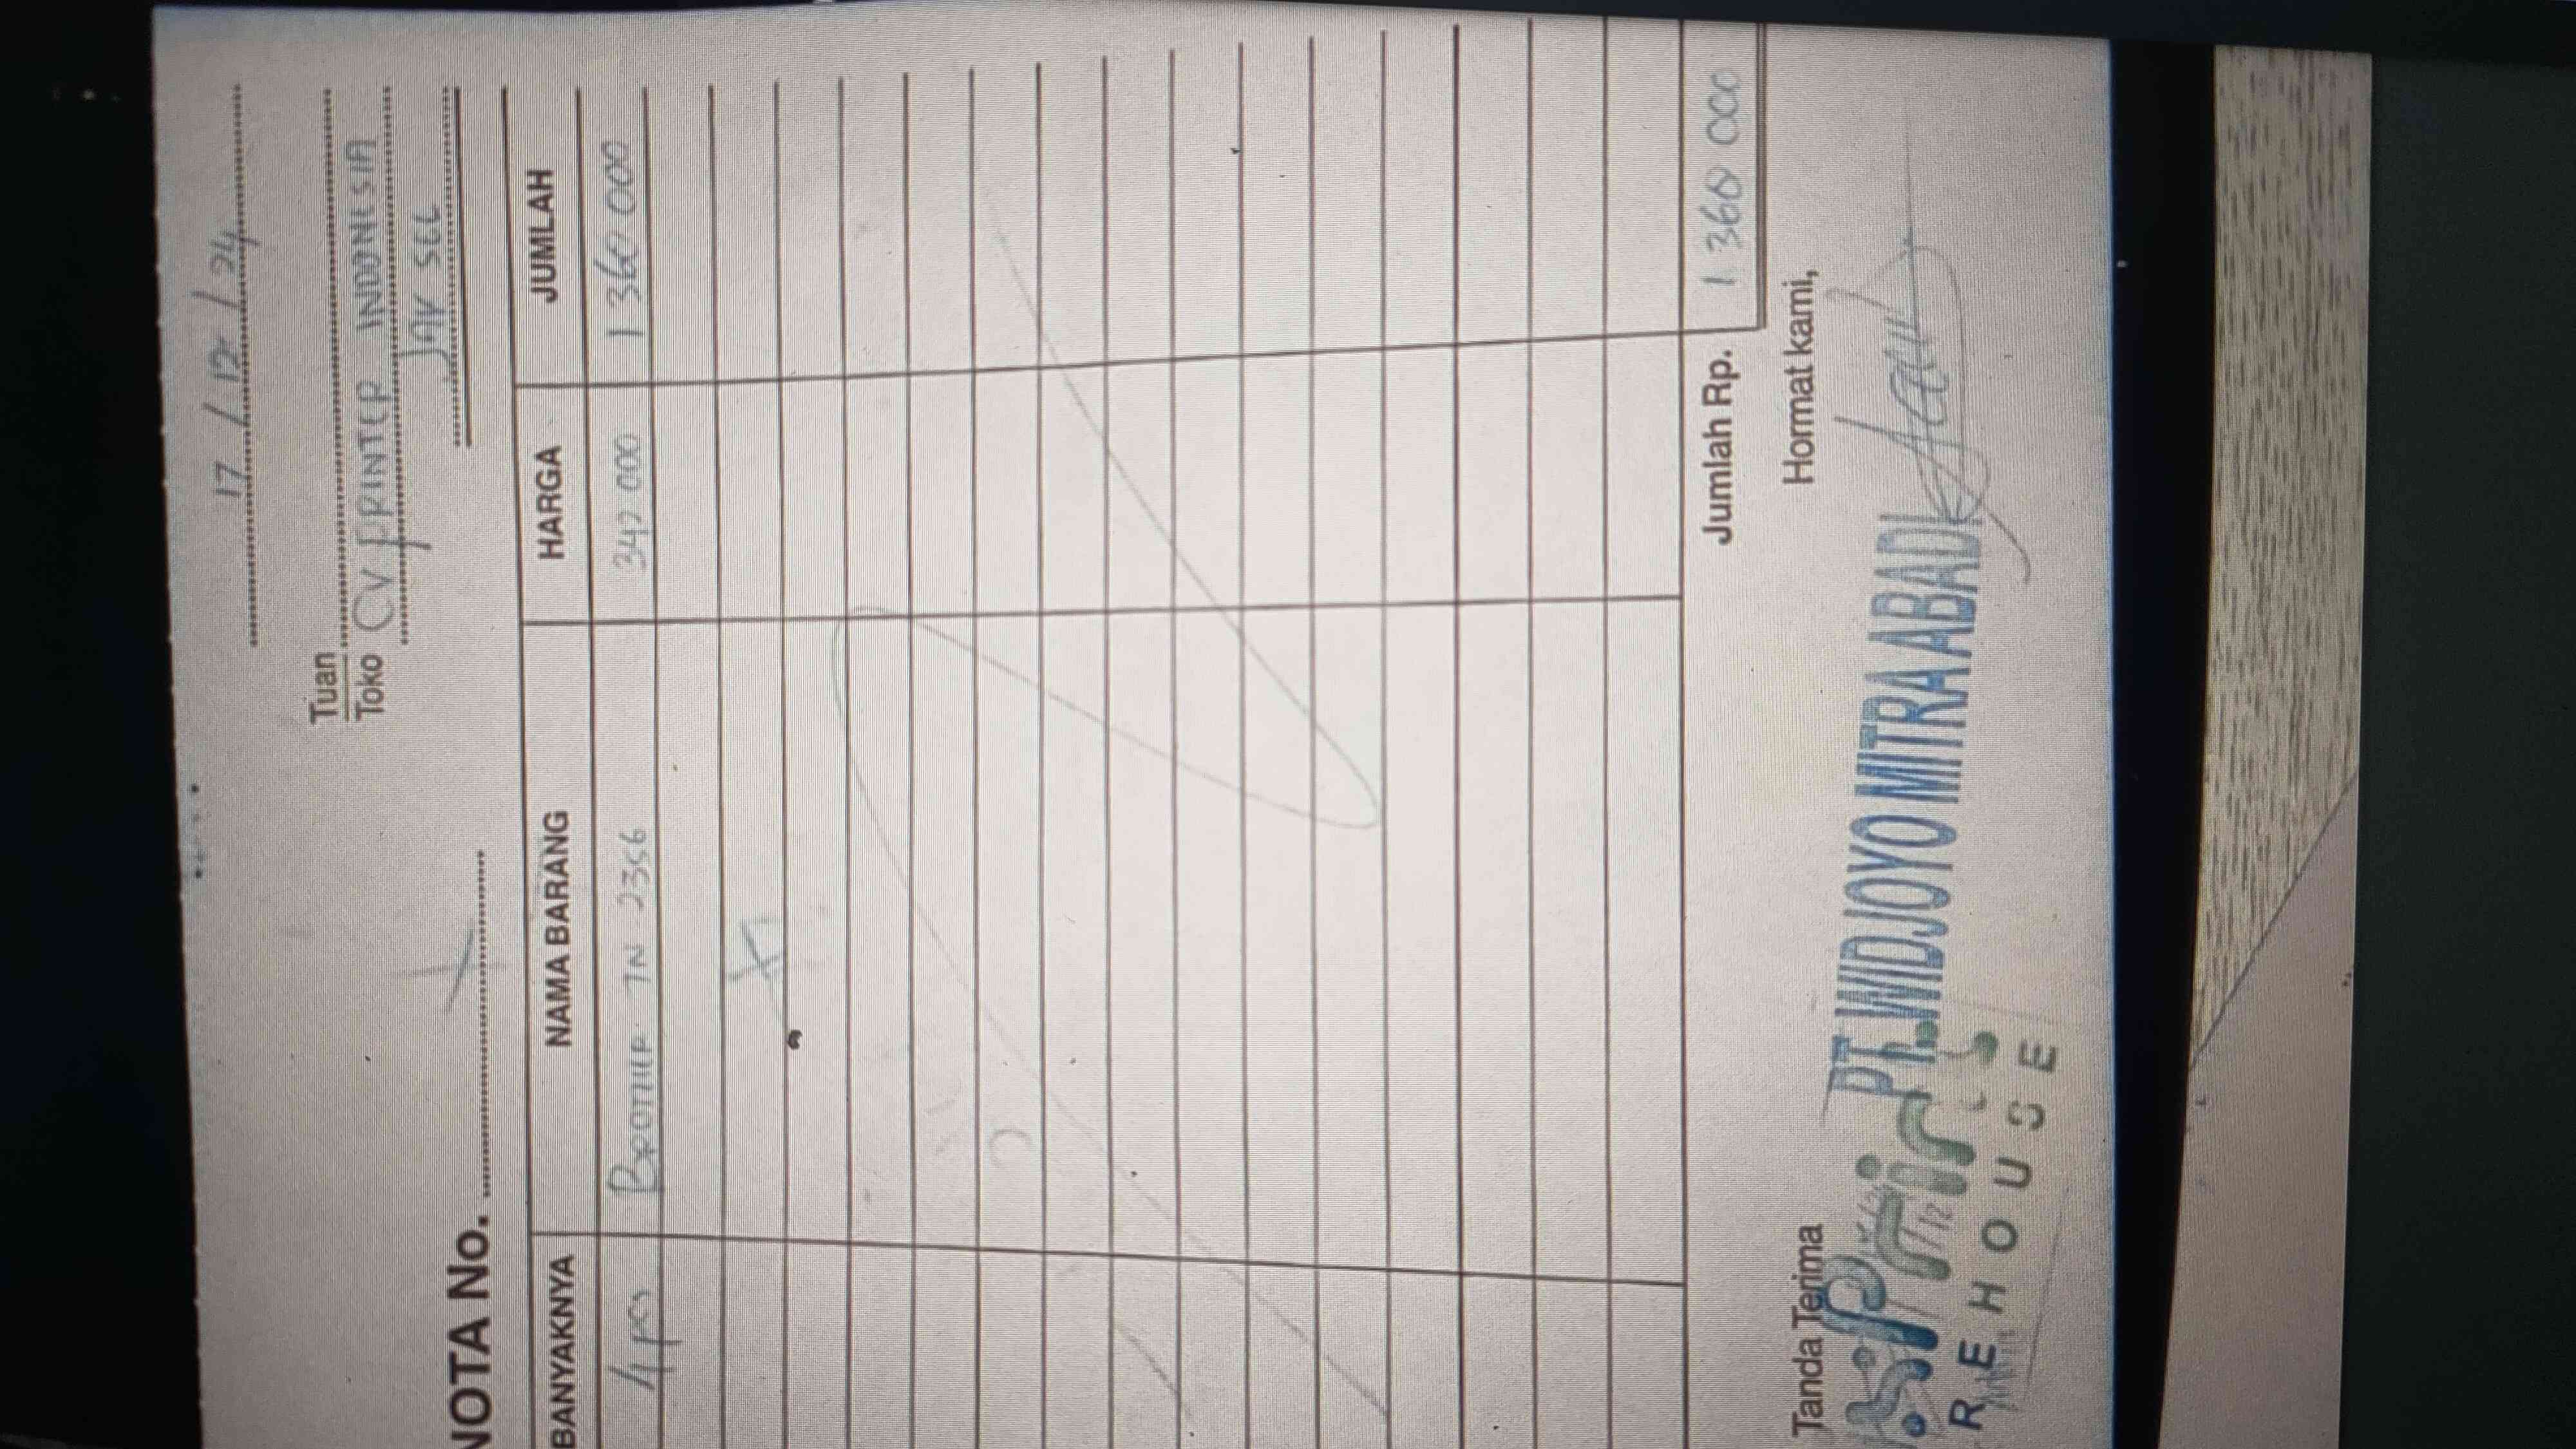 17 / 12 / 24
Tuan
Toko CV PRINTER INDONESIA
JAK SEL
NOTA No.
BANYAKNYA NAMA BARANG HARGA JUMLAH
4 pcs BROTHER TN 2356 340 000 1 360 000
Jumlah Rp. 1 360 000
Tanda Terima Hormat kami,
PT. WIDJOYO MITRA ABADI
REHOUSE